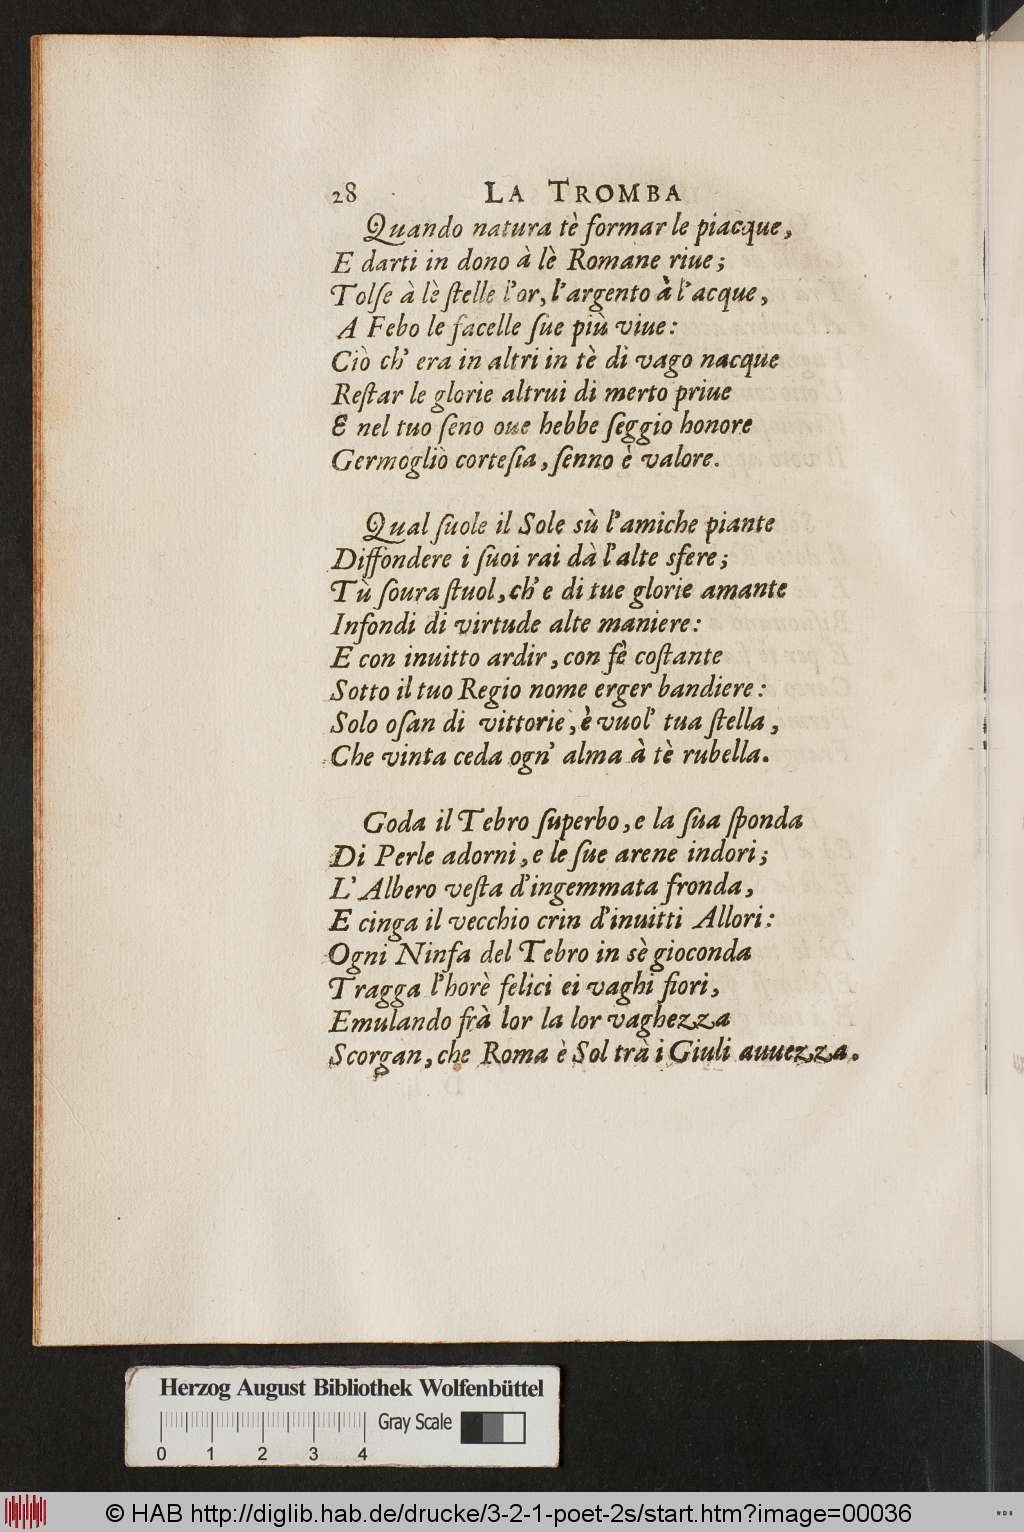 28 LA TROMBA
Quando natura tè formar le piacque,
E darti in dono à lè Romane riue;
Tolſe à lè ſtelle l'or, l'argento à l'acque,
A Febo le facelle ſue più viue:
Ciò ch' era in altri in tè di vago nacque
Reſtar le glorie altrui di merto priue
E nel tuo ſeno oue hebbe ſeggio honore
Germogliò corteſia, ſenno è valore.
Qual ſuole il Sole sù l'amiche piante
Diffondere i ſuoi rai dà l'alte sfere;
Tù ſoura ſtuol, ch' e di tue glorie amante
Infondi di virtude alte maniere:
E con inuitto ardir, con fè coſtante
Sotto il tuo Regio nome erger bandiere:
Solo oſan di vittorie, è vuol' tua ſtella,
Che vinta ceda ogn' alma à tè rubella.
Goda il Tebro ſuperbo, e la ſua ſponda
Di Perle adorni, e le ſue arene indori;
L' Albero veſta d'ingemmata fronda,
E cinga il vecchio crin d'inuitti Allori:
Ogni Ninfa del Tebro in sè gioconda
Tragga l'horè felici ei vaghi fiori,
Emulando frà lor la lor vaghezza
Scorgan, che Roma è Sol trà i Giuli auuezza.
Herzog August Bibliothek Wolfenbüttel
Gray Scale
0 1 2 3 4
© HAB http://diglib.hab.de/drucke/3-2-1-poet-2s/start.htm?image=00036